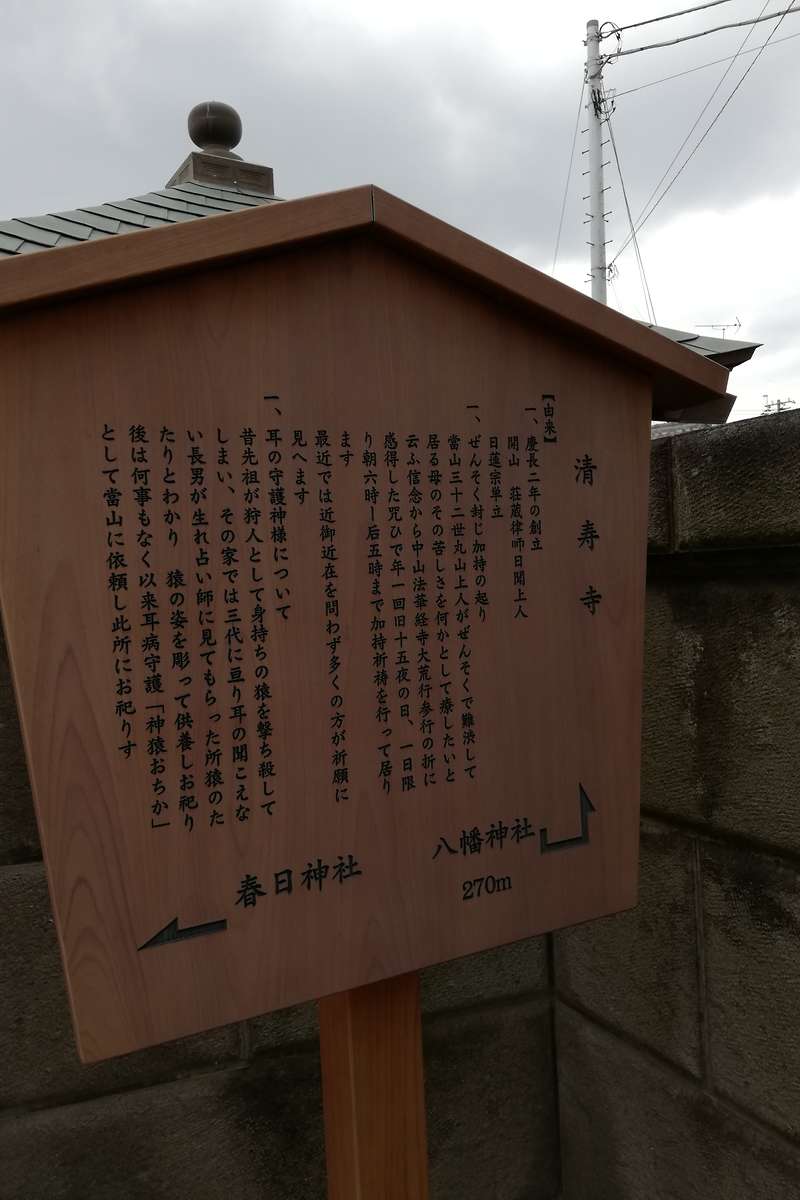 清寿寺
【由来】
一、慶長二年の創立
開山 荘蔵律師日開上人
日蓮宗単立
一、ぜんそく封じ加持の起り
當山三十二世丸山上人がぜんそくで難渋して
居る母のその苦しさを何かとして療したいと
云ふ信念から中山法華経寺大荒行参行の折に
感得した咒ひで年一回旧十五夜の日、一日限
り朝六時ー后五時まで加持祈祷を行って居り
ます
最近では近御近在を問わず多くの方が祈願に
見へます
一、耳の守護神様について
昔先祖が狩人として身持ちの猿を撃ち殺して
しまい、その家では三代に亘り耳の聞こえな
い長男が生れ占い師に見てもらった所猿のた
たりとわかり 猿の姿を彫って供養しお祀り
後は何事もなく以来耳病守護「神猿おちか」
として當山に依頼し此所にお祀りす
八幡神社
270m
春日神社